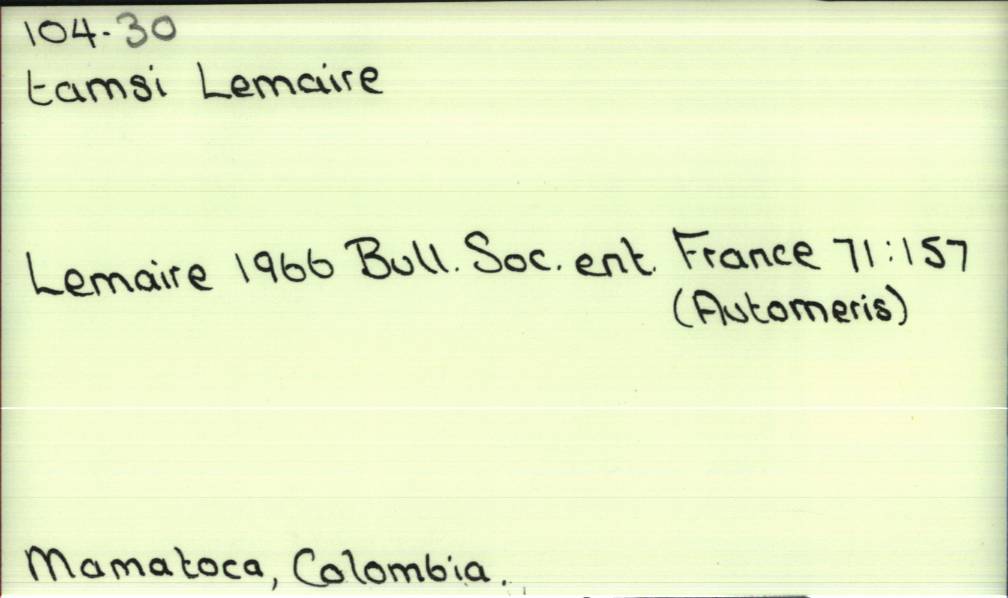 104-30
tamsi Lemaire
Lemaire 1966 Bull. Soc. ent. France 71:157
(Automeris)
Mamatoca, Colombia.